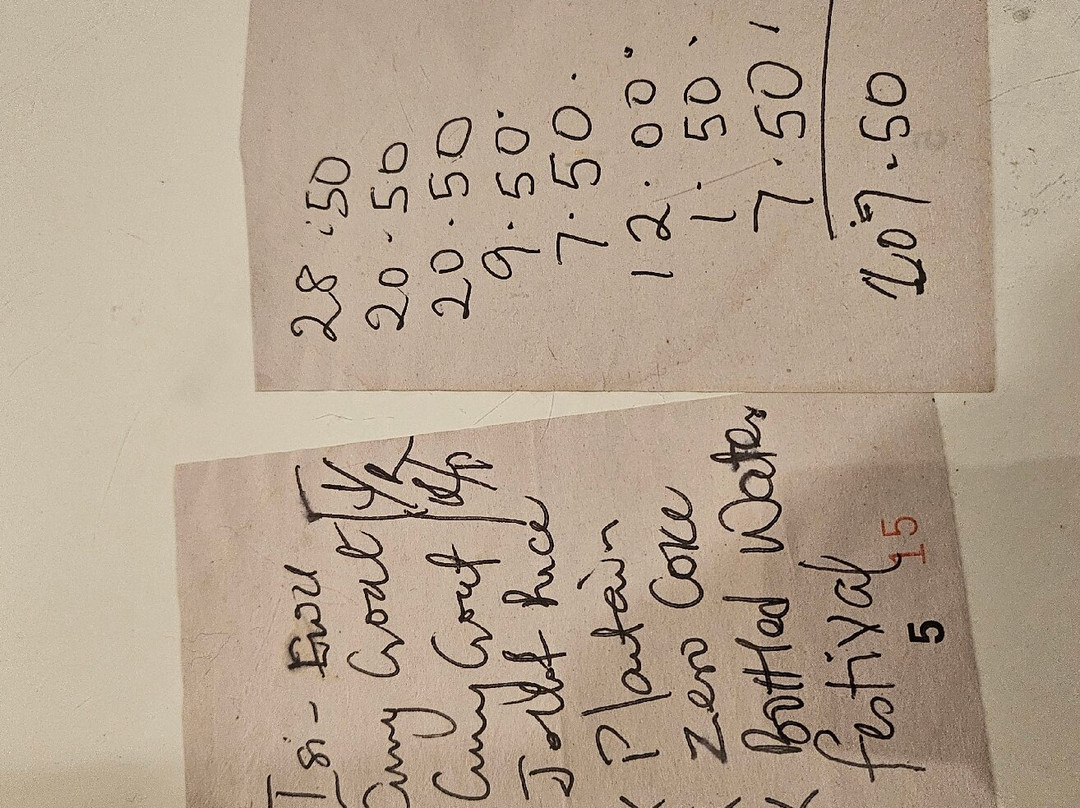 28.50
20.50
20.50
9.50
7.50
12.00
1.50
7.50
107.50
Isi-Ewu
Curry Goat
Curry Goat
Jollof Rice
Plantain
Zero Coke
Bottled Water
festival
5 15